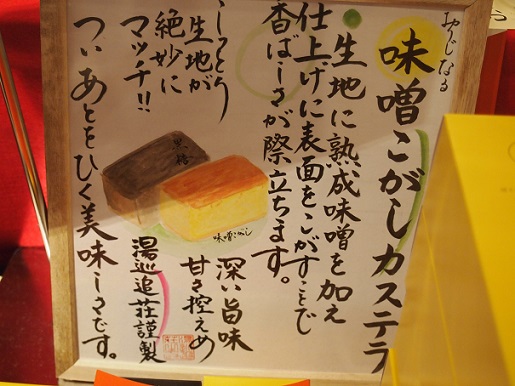 おりじなる
味噌こがしカステラ
・生地に熟成味噌を加え
仕上げに表面をこがすことで
香ばしさが際立ちます。
しっとり
生地が
絶妙に
マッチ!!
黒糖
味噌こがし
深い旨味
甘さ控えめ
ついあとをひく美味しさです。
湯巡追荘謹製